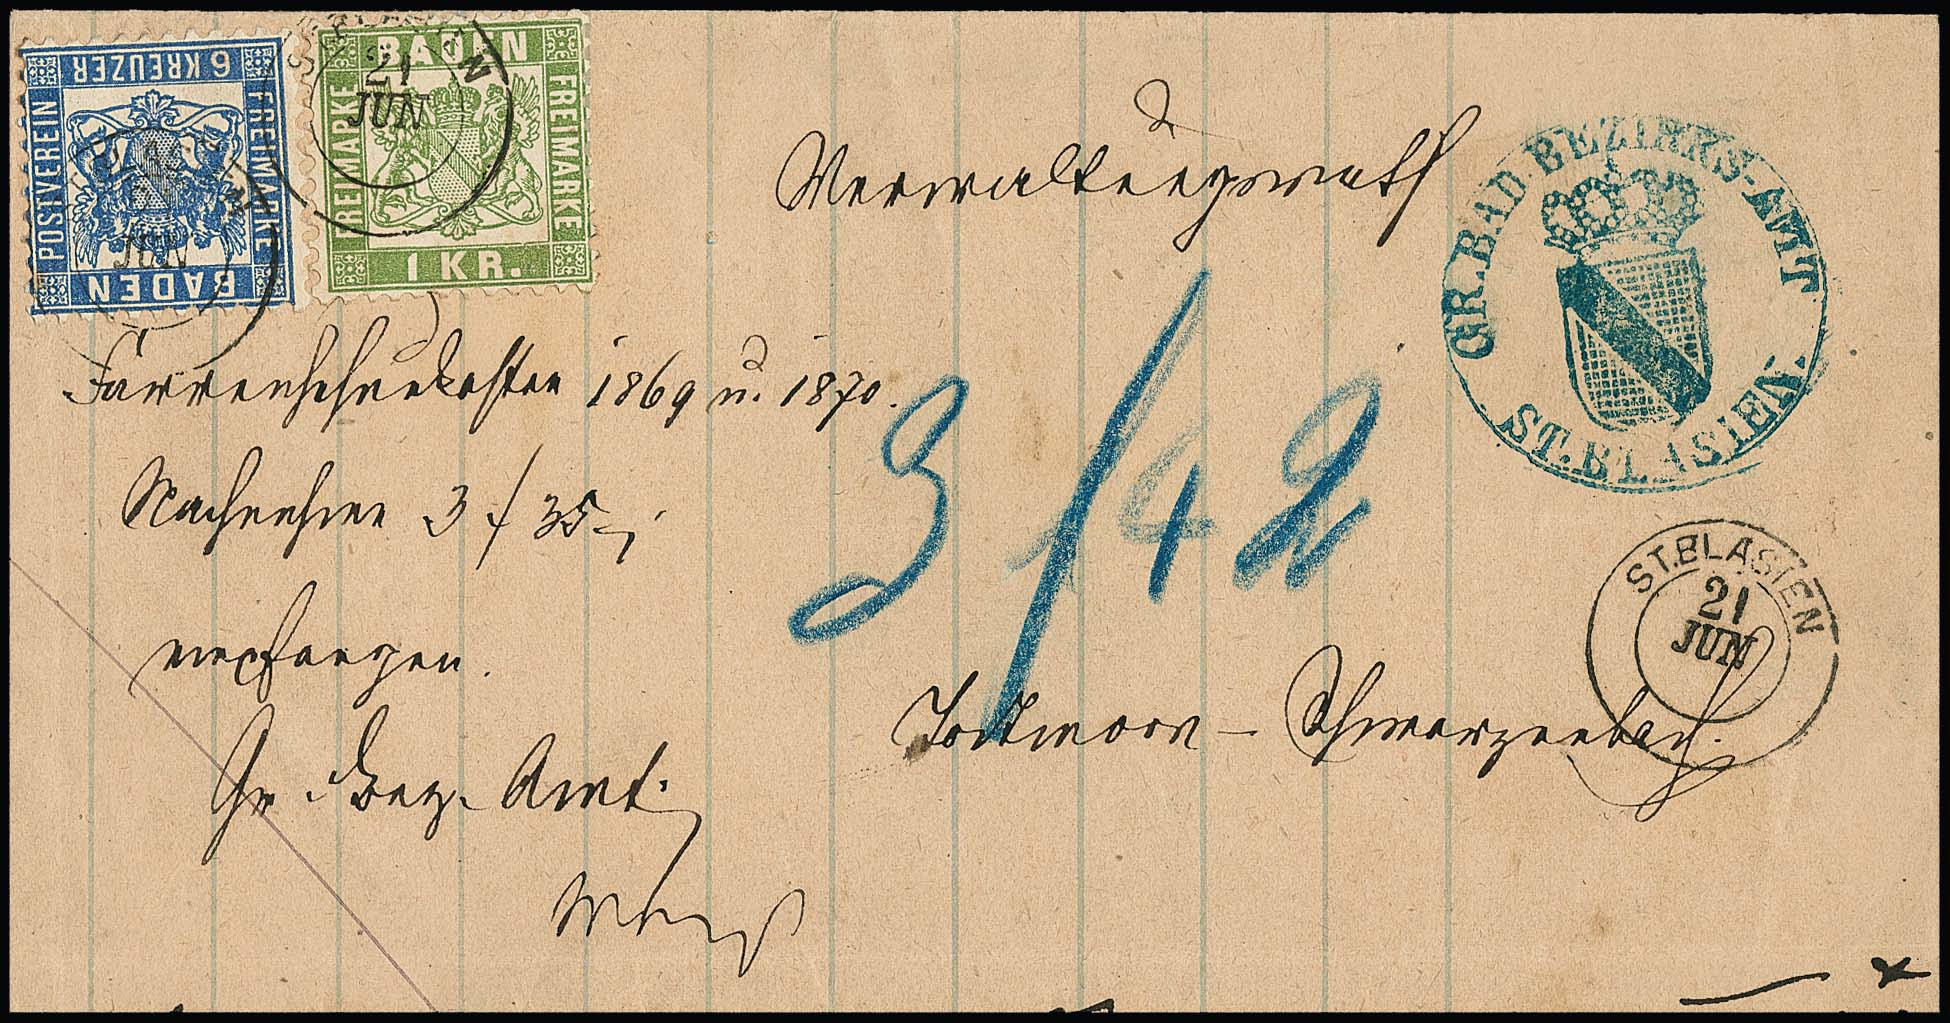 6 KREUZER
POSTVEREIN
FREIMARKE
BADEN
BADEN
FREIMARKE
FREIMARKE
1 KR.
21
JUN
JUN
Verwaltungsrath
GR. BAD. BEZIRKS-AMT
ST. BLASIEN.
1869 u. 1870.
Nachnahme 3 f 35
3 f 42
empfangen.
ST. BLASIEN
21
JUN
Todtmoos - Schwarzenbach.
Gr. Bez. Amt.